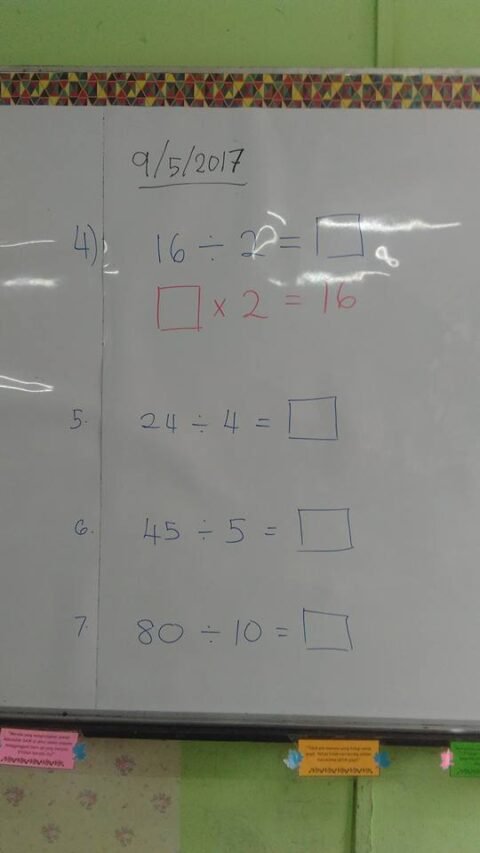 9/5/2017
4) 16 ÷ 2 = □
□ × 2 = 16
5. 24 ÷ 4 = □
6. 45 ÷ 5 = □
7. 80 ÷ 10 = □